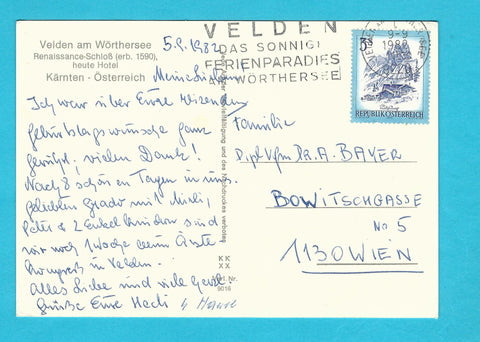 Velden am Wörthersee
Renaissance-Schloß (erb. 1590),
heute Hotel
Kärnten · Österreich
5.9.1982
Meine Lieben!
Ich war über Eure reizenden
Geburtstagswünsche ganz
gerührt, vielen Dank!
Nach 8 schönen Tagen in unserem
geliebten Grado mit
Peter & 2 Enkelkindern sind
wir noch 1 Woche beim Ärzte
Kongreß in Velden.
Alles Liebe und viele
Grüße Eure Hedi
VELDEN
DAS SONNIGE
FERIENPARADIES
AM WÖRTHERSEE
9-9
1982
3 S
REPUBLIK ÖSTERREICH
Familie
Dipl.Vfm Dr. A. BAYER
BOWITSCHGASSE
No 5
1130 WIEN
KK
XX
Nr.
9016